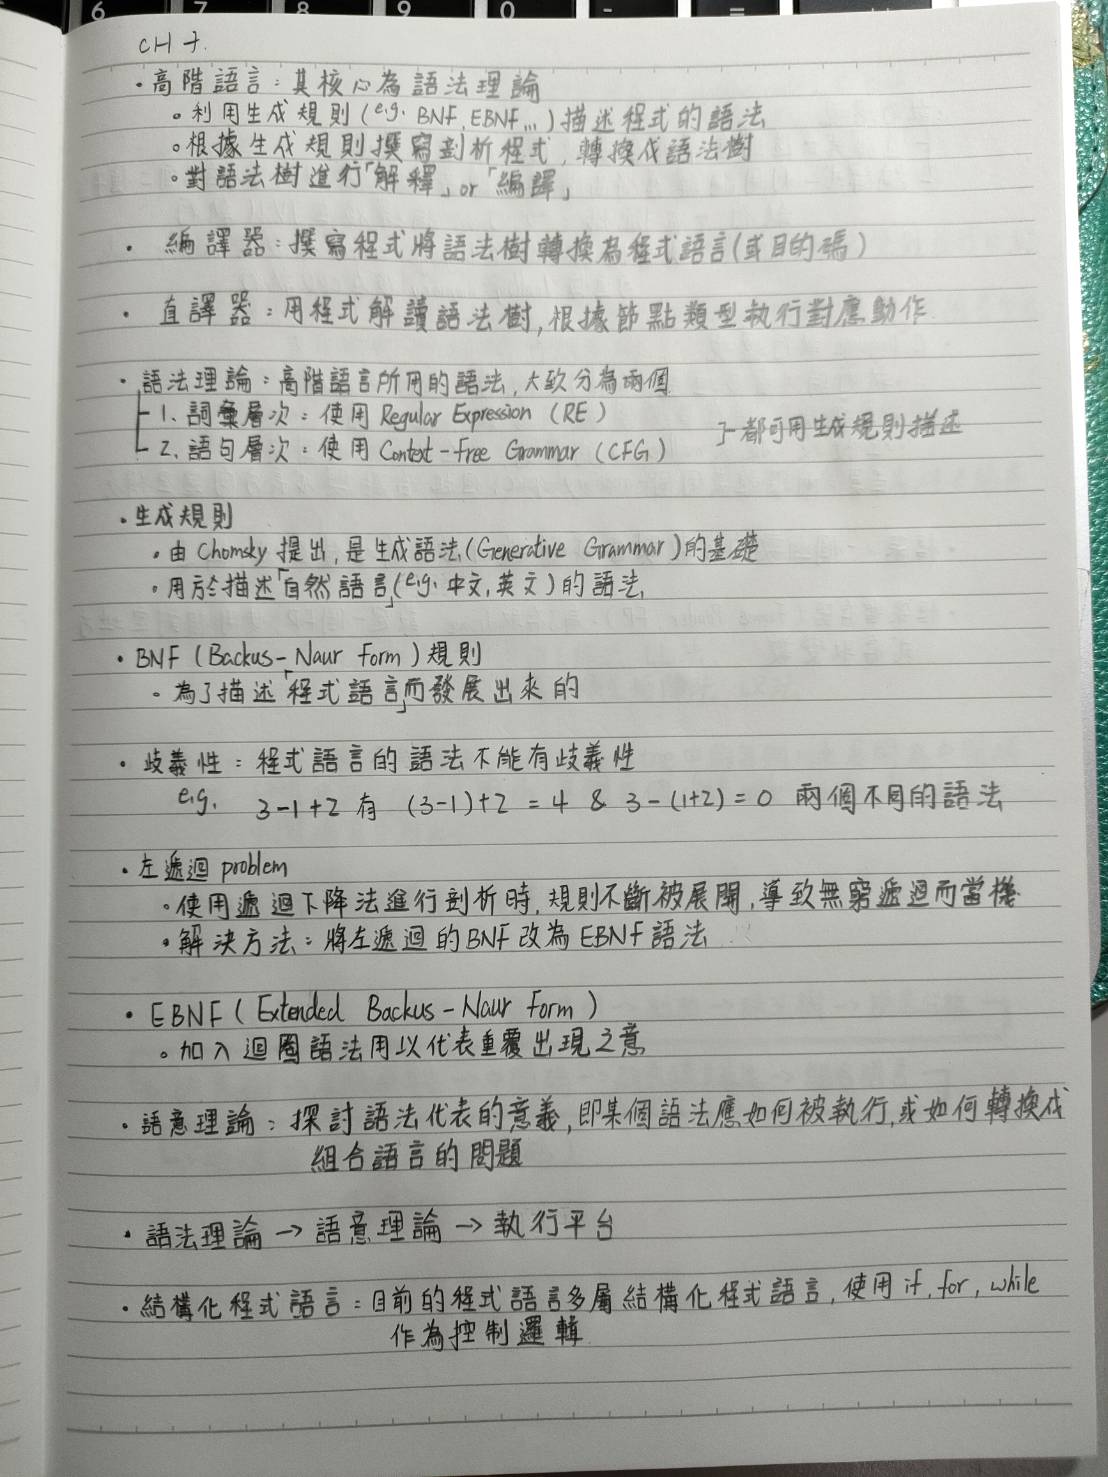 6 7 8 9 0 -
CH 7.
・高階語言：其核心為語法理論
。利用生成規則(e.g. BNF, EBNF...)描述程式的語法
。根據生成規則撰寫剖析程式，轉換成語法樹
。對語法樹進行「解釋」or「編譯」
・編譯器：撰寫程式將語法樹轉換為程式語言(或目的碼)
・直譯器：用程式解讀語法樹，根據節點類型執行對應動作
・語法理論：高階語言所用的語法，大致分為兩個
1. 詞彙層次：使用 Regular Expression (RE)
2. 語句層次：使用 Context-Free Grammar (CFG)
都可用生成規則描述
・生成規則
・由 Chomsky 提出，是生成語法(Generative Grammar)的基礎
・用於描述「自然語言」(e.g. 中文，英文)的語法
・BNF (Backus-Naur Form) 規則
。為了描述「程式語言」而發展出來的
・歧義性：程式語言的語法不能有歧義性
e.g. 3-1+2 有 (3-1)+2 = 4 & 3-(1+2)=0 兩個不同的語法
・左遞迴 problem
。使用遞迴下降法進行剖析時，規則不斷被展開，導致無窮遞迴而當機
・解決方法：將左遞迴的BNF改為EBNF語法
・EBNF (Extended Backus-Naur Form)
。加入迴圈語法用以代表重覆出現之意
・語意理論：探討語法代表的意義，即某個語法應如何被執行，或如何轉換成
組合語言的問題
・語法理論→語意理論→執行平台
・結構化程式語言：目前的程式語言多屬結構化程式語言，使用 if, for, while
作為控制邏輯